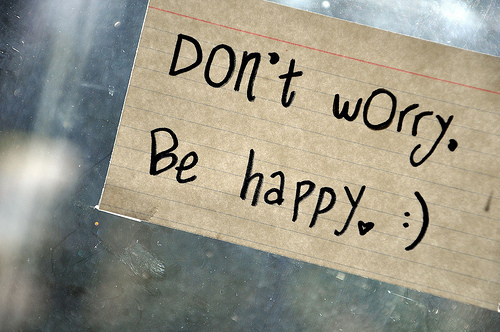 DON't wORRy.
Be happy. :)